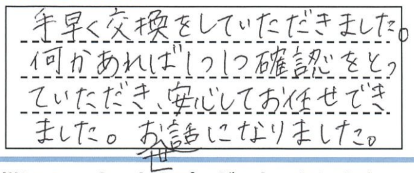 手早く交換をしていただきました。
何かあれば1つ1つ確認をとっ
ていただき、安心してお任せでき
ました。お世話になりました。